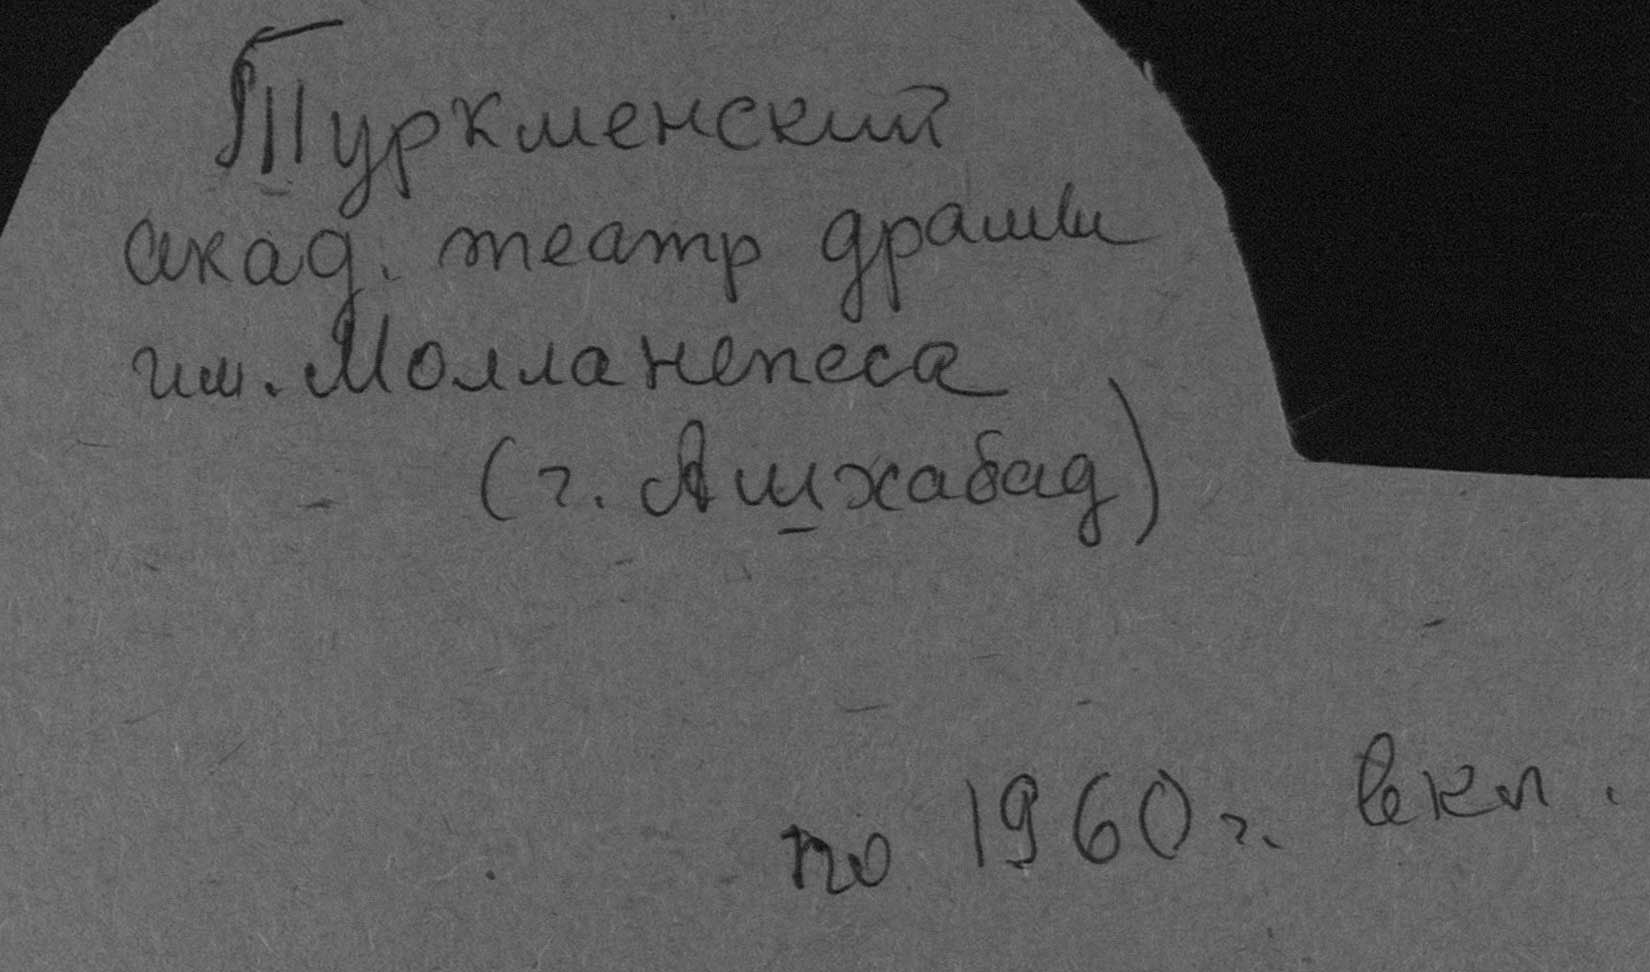 Туркменский
акад. театр драмы
им. Молланепеса
(г. Ашхабад)
по 1960 г. вкл.